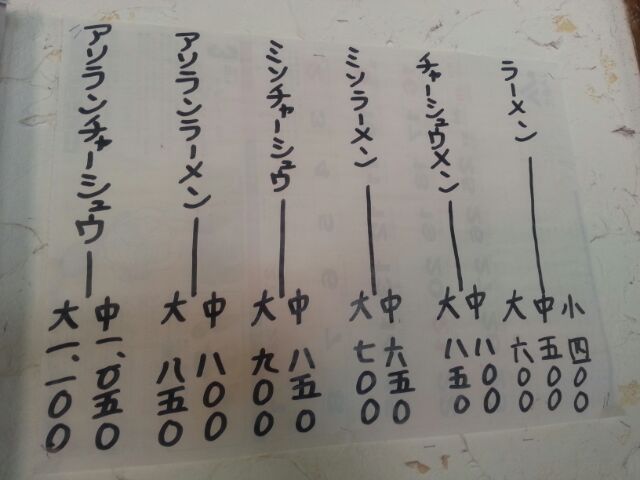 ラーメン 小 四〇〇 中 五〇〇 大 六〇〇
チャーシュウメン 中 八〇〇 大 八五〇
ミソラーメン 中 六五〇 大 七〇〇
ミソチャーシュウ 中 八五〇 大 九〇〇
アリランラーメン 中 八〇〇 大 八五〇
アリランチャーシュウ 中 一、〇五〇 大 一、一〇〇